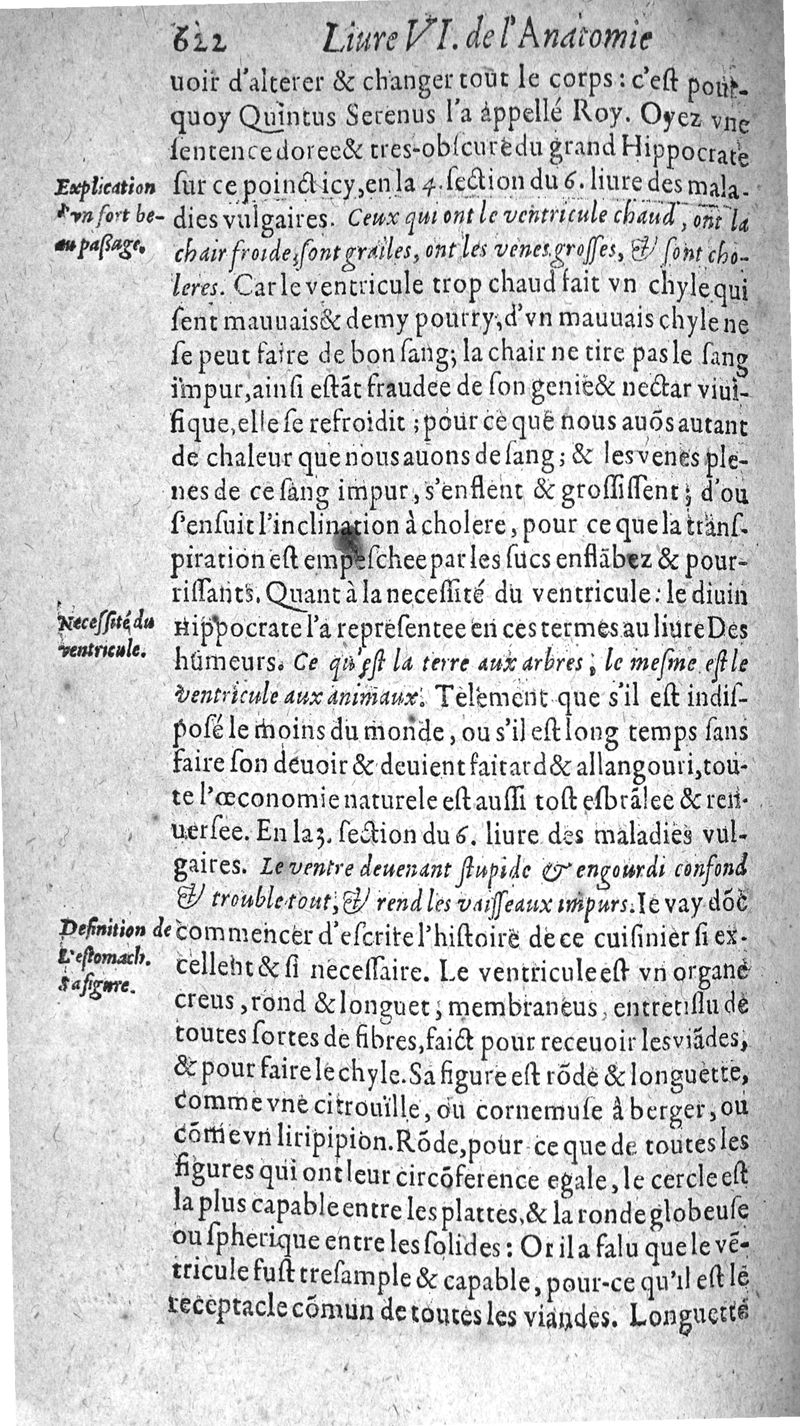 622 Liure VI. de l'Anatomie
uoir d'alterer & changer tout le corps : c'eſt pour-
quoy Quintus Serenus l'a appellé Roy. Oyez vne
ſentence doree & tres-obſcure du grand Hippocrate
Explication
ſur ce poinct icy, en la 4. ſection du 6. liure des mala-
d'vn fort be-
dies vulgaires. Ceux qui ont le ventricule chaud, ont la
au paßage.
chair froide, ſont graſles, ont les venes groſſes, & ſont cho-
leres. Car le ventricule trop chaud fait vn chyle qui
ſent mauuais & demy pourry, d'vn mauuais chyle ne
ſe peut faire de bon ſang; la chair ne tire pas le ſang
impur, ainſi eſtāt fraudee de ſon genie & nectar viui-
fique, elle ſe refroidit ; pour ce que nous auōs autant
de chaleur que nous auons de ſang ; & les venes ple-
nes de ce ſang impur, s'enflent & groſſiſſent ; d'ou
s'enſuit l'inclination à cholere, pour ce que la tranſ-
piration eſt empeſchee par les ſucs enflābez & pour-
riſſants. Quant à la neceſſité du ventricule : le diuin
Neceſſité du
Hippocrate l'a repreſentee en ces termes au liure Des
ventricule.
humeurs. Ce qu'eſt la terre aux arbres, le meſme eſt le
ventricule aux animaux. Telement que s'il eſt indiſ-
poſé le moins du monde, ou s'il eſt long temps ſans
faire ſon deuoir & deuient faitard & allangouri, tou-
te l'œconomie naturele eſt auſſi toſt eſbrālee & ren-
uerſee. En la 3. ſection du 6. liure des maladies vul-
gaires. Le ventre deuenant ſtupide & engourdi confond
& trouble tout, & rend les vaiſſeaux impurs. Ie vay dōc
Definition de
commencer d'eſcrire l'hiſtoire de ce cuiſinier ſi ex-
L'eſtomach.
cellent & ſi neceſſaire. Le ventricule eſt vn organe
Sa figure.
creus, rond & longuet, membraneus, entretiſſu de
toutes ſortes de fibres, faict pour receuoir les viādes,
& pour faire le chyle. Sa figure eſt rōde & longuette,
comme vne citrouïlle, ou cornemuſe à berger, ou
cōme vn liripipion. Rōde, pour ce que de toutes les
figures qui ont leur circōference egale, le cercle eſt
la plus capable entre les plattes, & la ronde globeuſe
ou ſpherique entre les ſolides : Or il a falu que le vē-
tricule fuſt treſample & capable, pour-ce qu'il eſt le
receptacle cōmun de toutes les viandes. Longuette